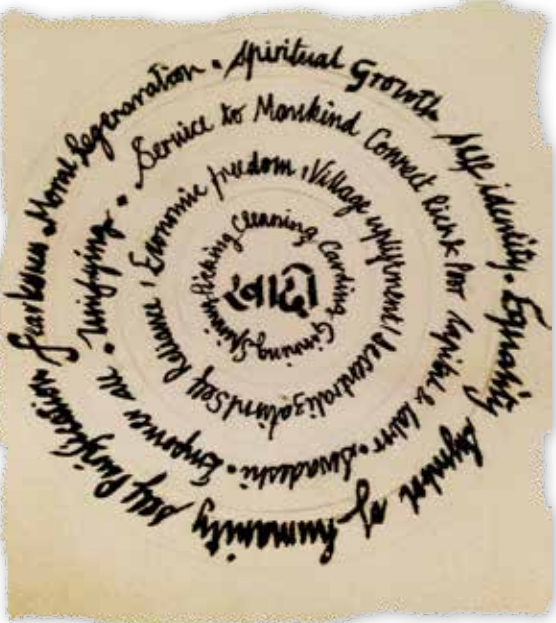 ખાદી
Picking Cleaning Carding Ginning Spinning
Economic freedom, Village upliftment, decentralization, Self Reliance,
Service to Mankind Connect Rich & Poor Capital & labor • Swadeshi • Empower all • Unifying •
Spiritual Growth Self identity • Equality Symbol of humanity Self Purification Fearlessness Moral Regeneration •